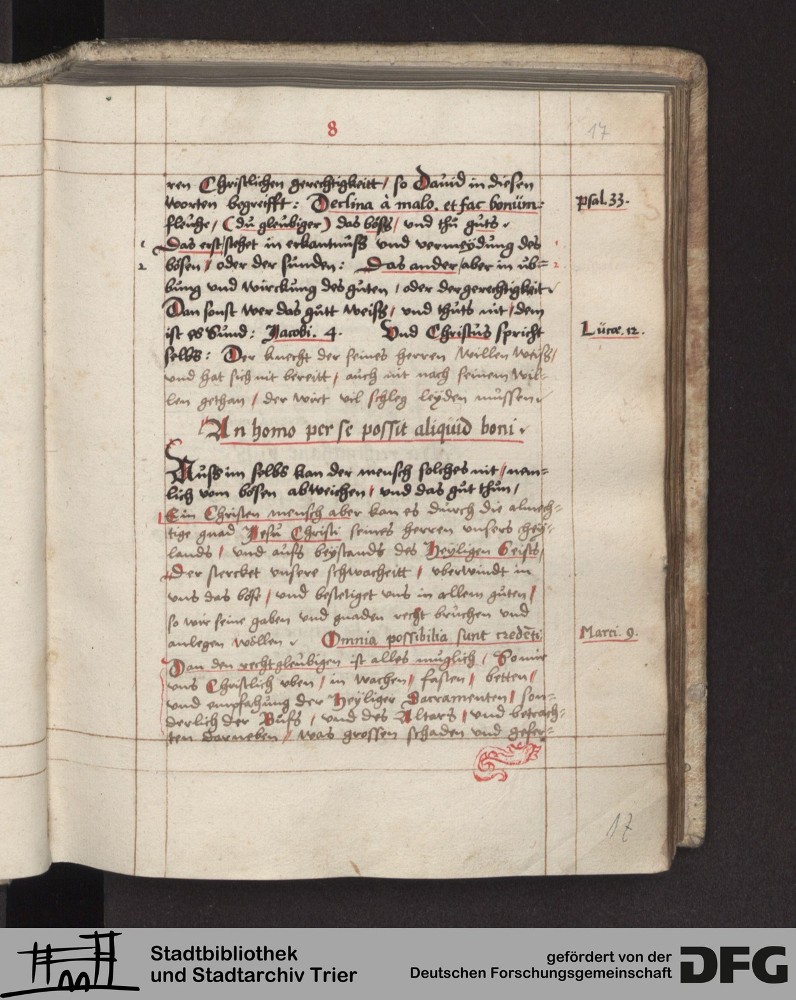 8
17
ren Christlichen gerechtigkeitt/ so Dauid in diesen
worten begreifft: Declina à malo, et fac bonum: psal. 33.
fleuhe, (du gleubiger) das böß/ und thu guts.
1 Das erst/ stehet in erkantnuß und vermeydung des 1
2 bösen/ oder der sunden: Das ander/ aber in ub= 2
bung und wirckung des guten/ oder der gerechtigkeit.
Dan sonst wer das gutt weiß/ und thuts nit/ dem
ist es Sund: Jacobi. 4. Und Christus spricht Lucæ. 12.
selbs: Der knecht der seines herren willen weiß/
und hat sich nit bereitt/ auch nit nach seinem wil=
len gethan/ der wirt vil schleg leyden mussen.
An homo per se possit aliquid boni.
Auß im selbs kan der mensch solches nit/ nem=
lich vom bosen abweichen/ und das gut thun/
Ein Christen mensch aber kan es durch die almech=
tige gnad Jesu Christi seines herren unsers hey=
lands/ und auß beystands des Heyligen Geists/
Der stercket unsere schwacheitt/ uberwindt in
uns das böse/ und bestetiget uns in allem guten/
so wir seine gaben und gnaden recht bruchen und
anlegen wöllen. Omnia possibilia sunt credēti Marci. 9.
Dan den rechtgleubigen ist alles muglich/ So wir
uns Christlich uben/ in wachen/ fasten/ betten/
und empfahung der Heyliger Sacramenten/ son=
derlich der Buß/ und des Altars/ und betrach=
ten darneben/ was grossen schaden und gefer=
17
Stadtbibliothek
und Stadtarchiv Trier
gefördert von der
Deutschen Forschungsgemeinschaft
DFG